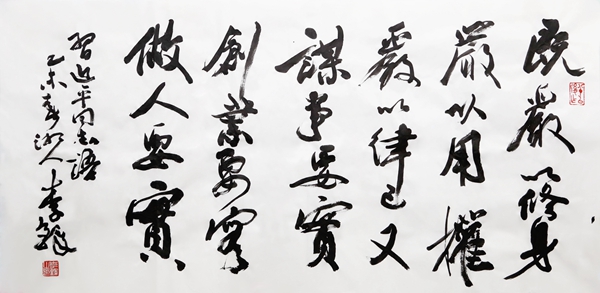 既嚴以修身
嚴以用權
嚴以律己又
謀事要實
創業要實
做人要實
習近平同志語
乙未春 人李